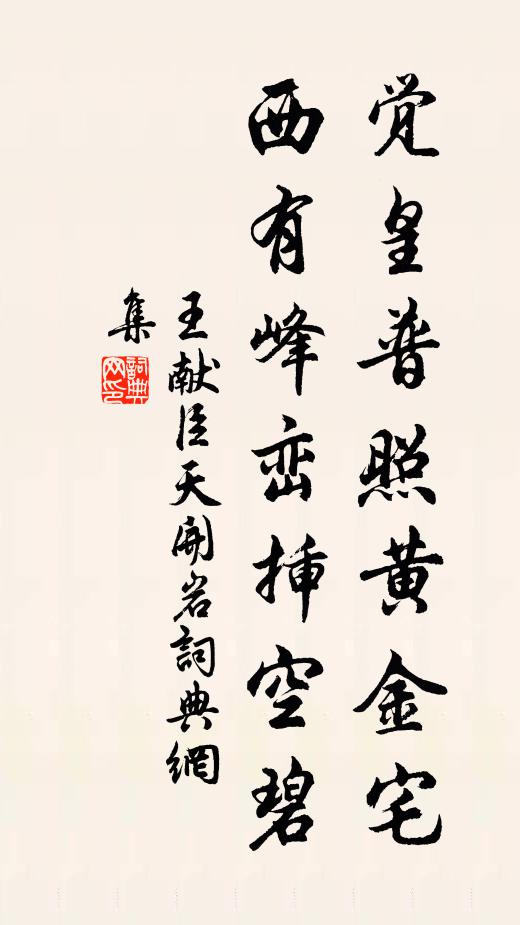 觉皇普照黄金宅
西有峰峦插空碧
王献臣天開岩詞典網
集
詞典网印